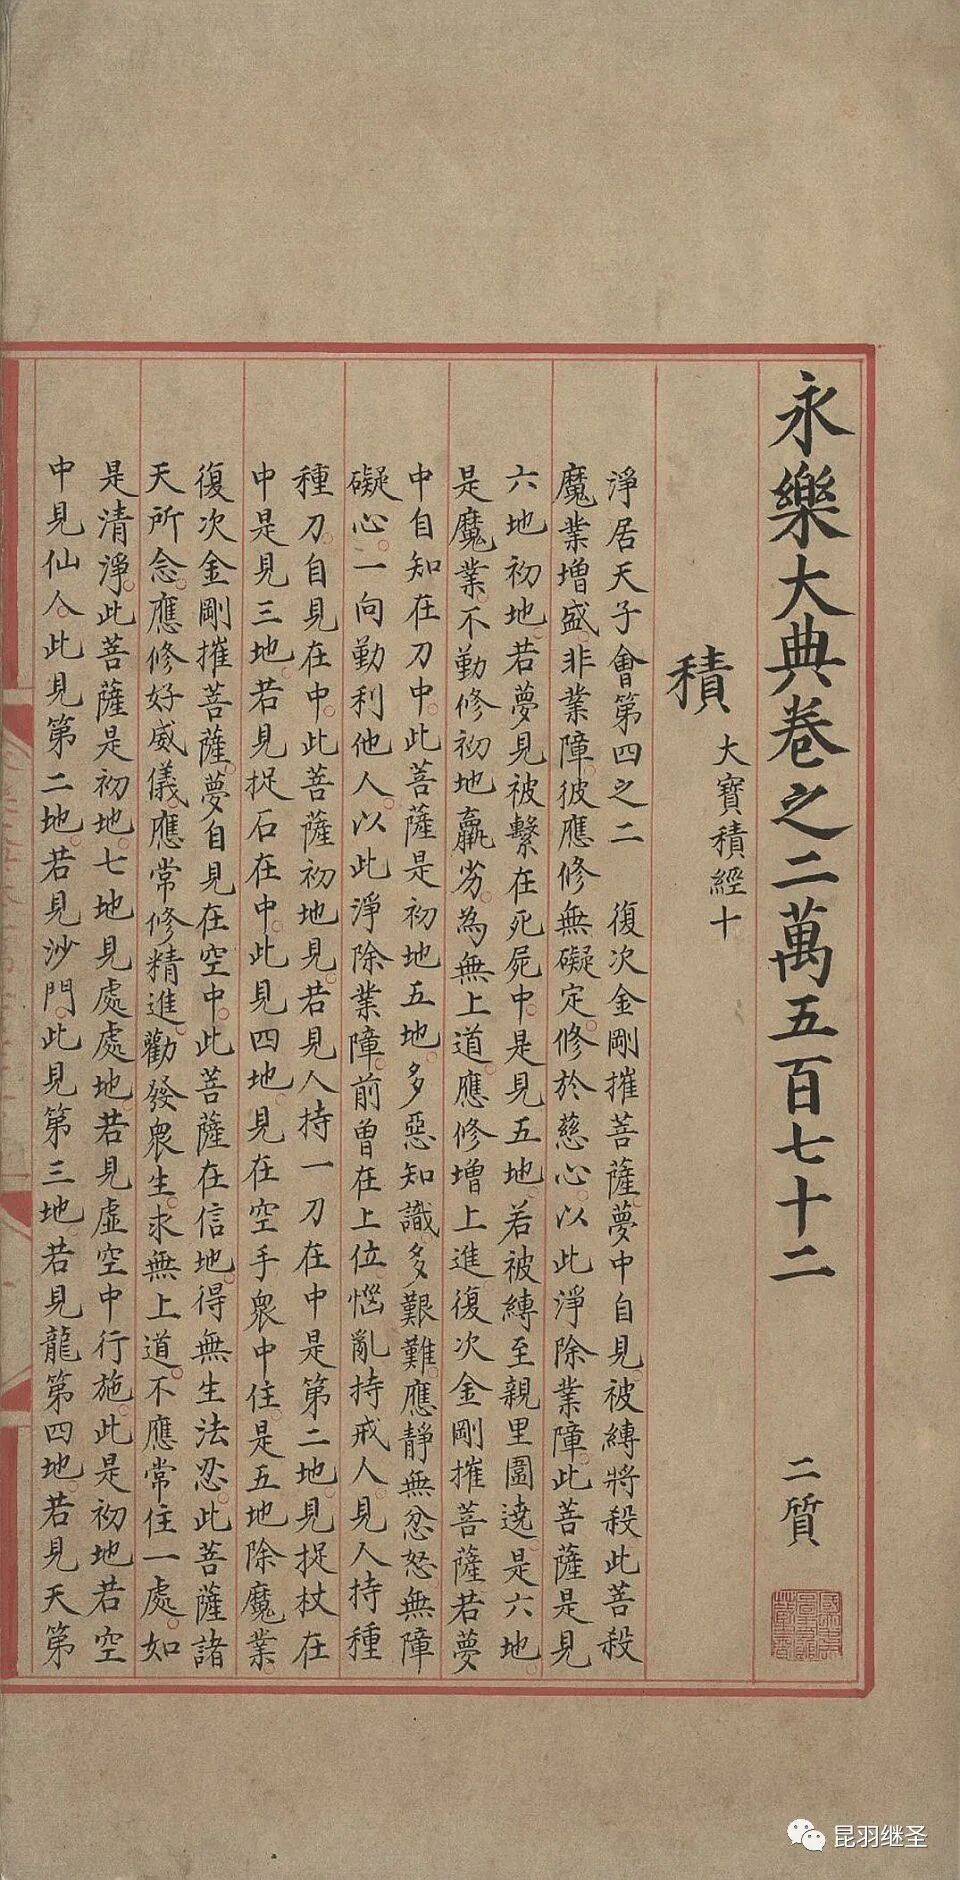 永樂大典卷之二萬五百七十二 二質
積 大寶積經十
淨居天子會第四之二 復次金剛摧菩薩夢中自見被縛將殺此菩殺
魔業增盛非業障彼應修無礙定修於慈心以此淨除業障此菩薩是見
六地初地若夢見被繫在死屍中是見五地若被縛至親里圍遶是六地
是魔業不勤修初地羸劣為無上道應修增上進復次金剛摧菩薩若夢
中自知在刀中此菩薩是初地五地多惡知識多艱難應靜無忿怒無障
礙心一向勤利他人以此淨除業障前曾在上位惱亂持戒人見人持種
種刀自見在中此菩薩初地見若見人持一刀在中是第二地見捉杖在
中是見三地若見捉石在中此見四地見在空手衆中住是五地除魔業
復次金剛摧菩薩夢自見在空中此菩薩在信地得無生法忍此菩薩諸
天所念應修好威儀應常修精進勸發衆生求無上道不應常住一處如
是清淨此菩薩是初地七地見處處地若見虛空中行施此是初地若空
中見仙人此見第二地若見沙門此見第三地若見龍第四地若見天第
昆羽继圣